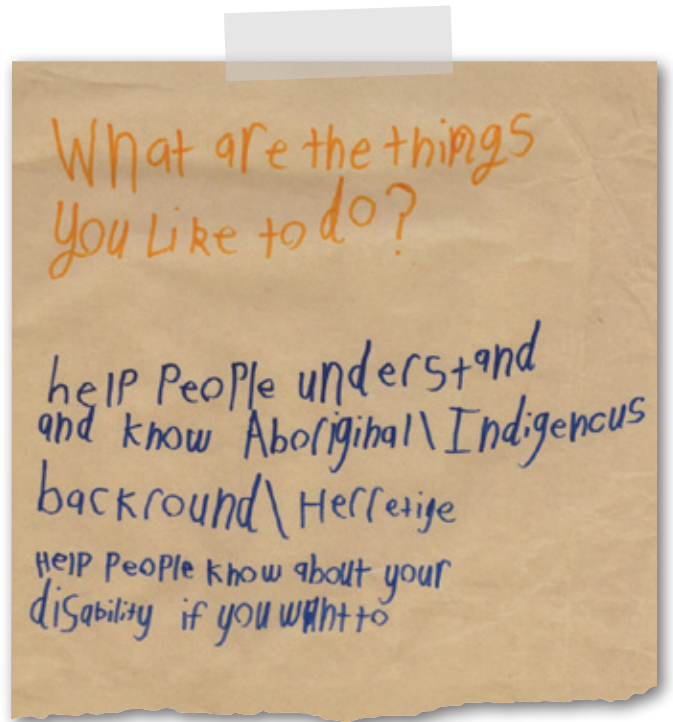 What are the things
you Like to do?
help People understand
and know Aboriginal\Indigenous
backround\Herretige
Help People know about your
disability if you want to